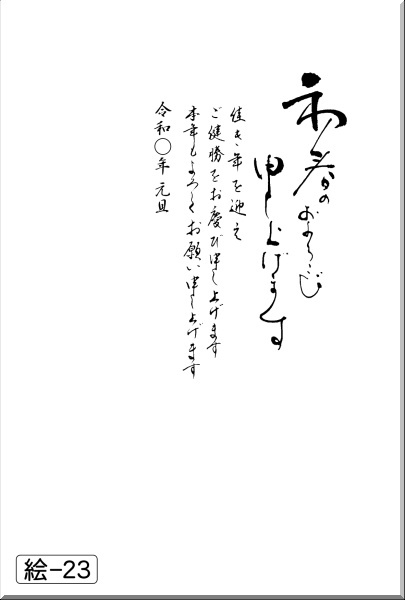 初春のおよろこび
申し上げます
佳き年を迎え
ご健勝をお慶び申し上げます
本年もよろしくお願い申し上げます
令和〇年 元旦
絵-23